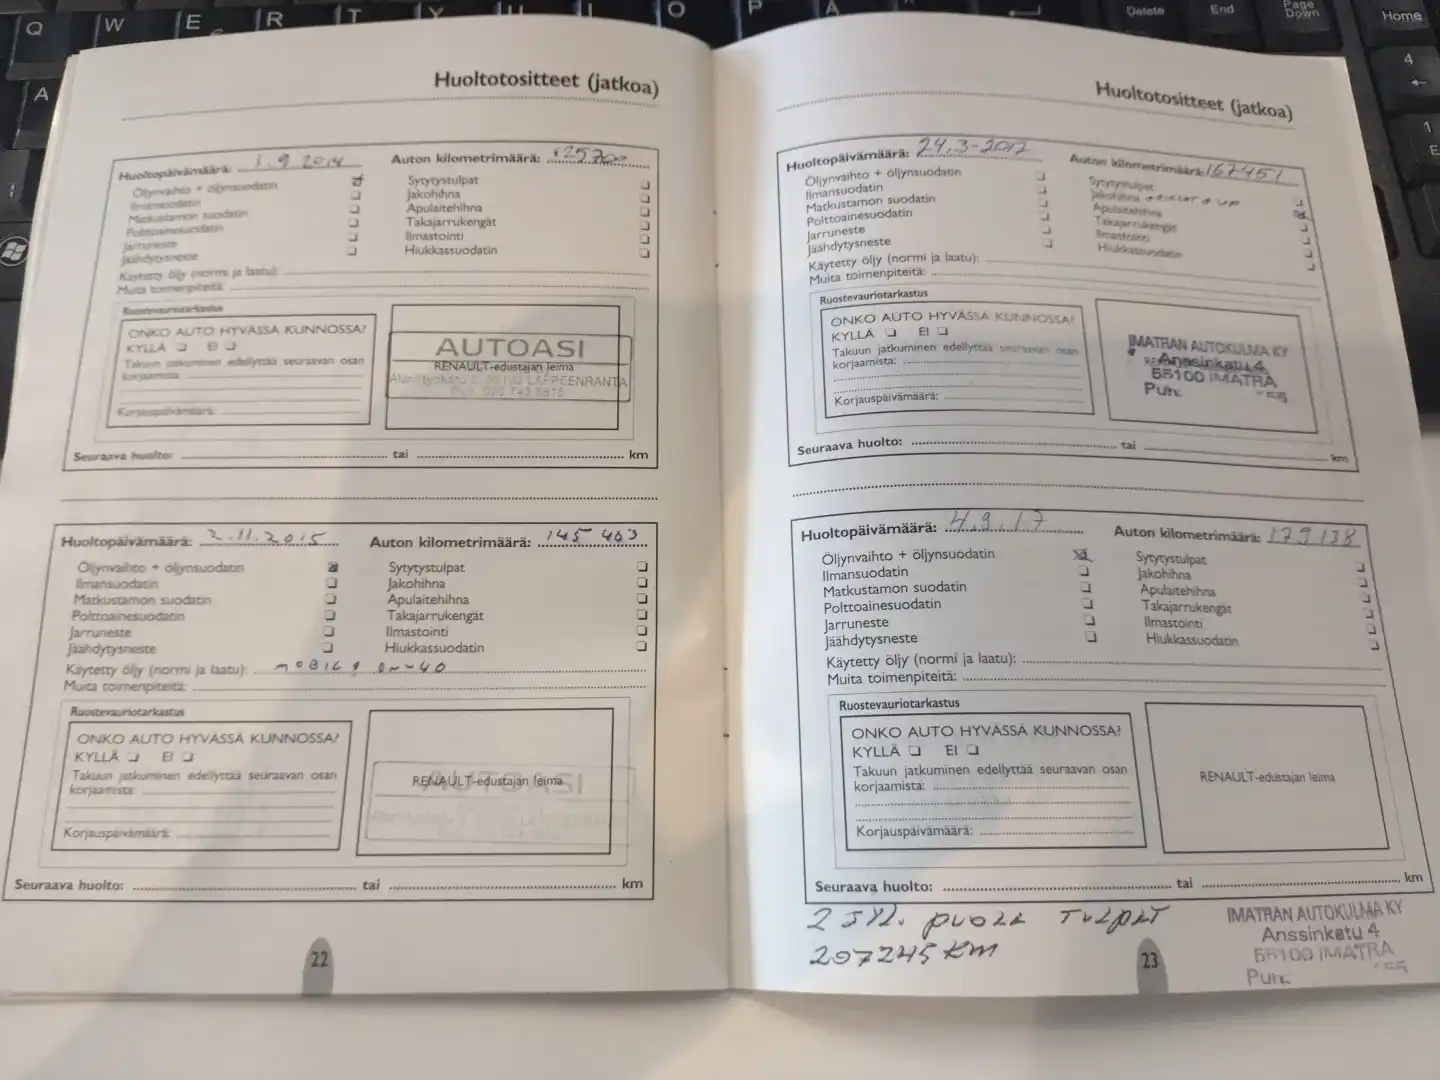 Q W E R T Y U I O P Å Delete End Page Down Home
A
4
1
Huoltotositteet (jatkoa)
Huoltopäivämäärä: 1.9 2014 Auton kilometrimäärä: 125700
Öljynvaihto + öljynsuodatin Sytytystulpat
Ilmansuodatin Jakohihna
Matkustamon suodatin Apulaitehihna
Polttoainesuodatin Takajarrukengät
Jarruneste Ilmastointi
Jäähdytysneste Hiukkassuodatin
Käytetty öljy (normi ja laatu):
Muita toimenpiteitä:
Ruostevauriotarkastus
ONKO AUTO HYVÄSSÄ KUNNOSSA?
KYLLÄ EI
Takuun jatkuminen edellyttää seuraavan osan
korjaamista:
Korjauspäivämäärä:
AUTOASI
RENAULT-edustajan leima
LAPPEENRANTA
Seuraava huolto: tai km
Huoltopäivämäärä: 2.11.2015 Auton kilometrimäärä: 145 463
Öljynvaihto + öljynsuodatin Sytytystulpat
Ilmansuodatin Jakohihna
Matkustamon suodatin Apulaitehihna
Polttoainesuodatin Takajarrukengät
Jarruneste Ilmastointi
Jäähdytysneste Hiukkassuodatin
Käytetty öljy (normi ja laatu): MOBIL 1 0W-40
Muita toimenpiteitä:
Ruostevauriotarkastus
ONKO AUTO HYVÄSSÄ KUNNOSSA?
KYLLÄ EI
Takuun jatkuminen edellyttää seuraavan osan
korjaamista:
Korjauspäivämäärä:
AUTOASI
RENAULT-edustajan leima
Seuraava huolto: tai km
22
Huoltotositteet (jatkoa)
Huoltopäivämäärä: 24.3-2017 Auton kilometrimäärä: 167451
Öljynvaihto + öljynsuodatin Sytytystulpat
Ilmansuodatin Jakohihna
Matkustamon suodatin Apulaitehihna
Polttoainesuodatin Takajarrukengät
Jarruneste Ilmastointi
Jäähdytysneste Hiukkassuodatin
Käytetty öljy (normi ja laatu):
Muita toimenpiteitä:
Ruostevauriotarkastus
ONKO AUTO HYVÄSSÄ KUNNOSSA?
KYLLÄ EI
Takuun jatkuminen edellyttää seuraavan osan
korjaamista:
Korjauspäivämäärä:
IMATRAN AUTOKULMA KY
Anssinkatu 4
55100 IMATRA
Puh.
Seuraava huolto: tai km
Huoltopäivämäärä: 4.9.17 Auton kilometrimäärä: 179138
Öljynvaihto + öljynsuodatin Sytytystulpat
Ilmansuodatin Jakohihna
Matkustamon suodatin Apulaitehihna
Polttoainesuodatin Takajarrukengät
Jarruneste Ilmastointi
Jäähdytysneste Hiukkassuodatin
Käytetty öljy (normi ja laatu):
Muita toimenpiteitä:
Ruostevauriotarkastus
ONKO AUTO HYVÄSSÄ KUNNOSSA?
KYLLÄ EI
Takuun jatkuminen edellyttää seuraavan osan
korjaamista:
Korjauspäivämäärä:
RENAULT-edustajan leima
Seuraava huolto: tai km
2 SYL. PUOLA TULPAT
207245 KM
IMATRAN AUTOKULMA KY
Anssinkatu 4
55100 IMATRA
Puh.
23